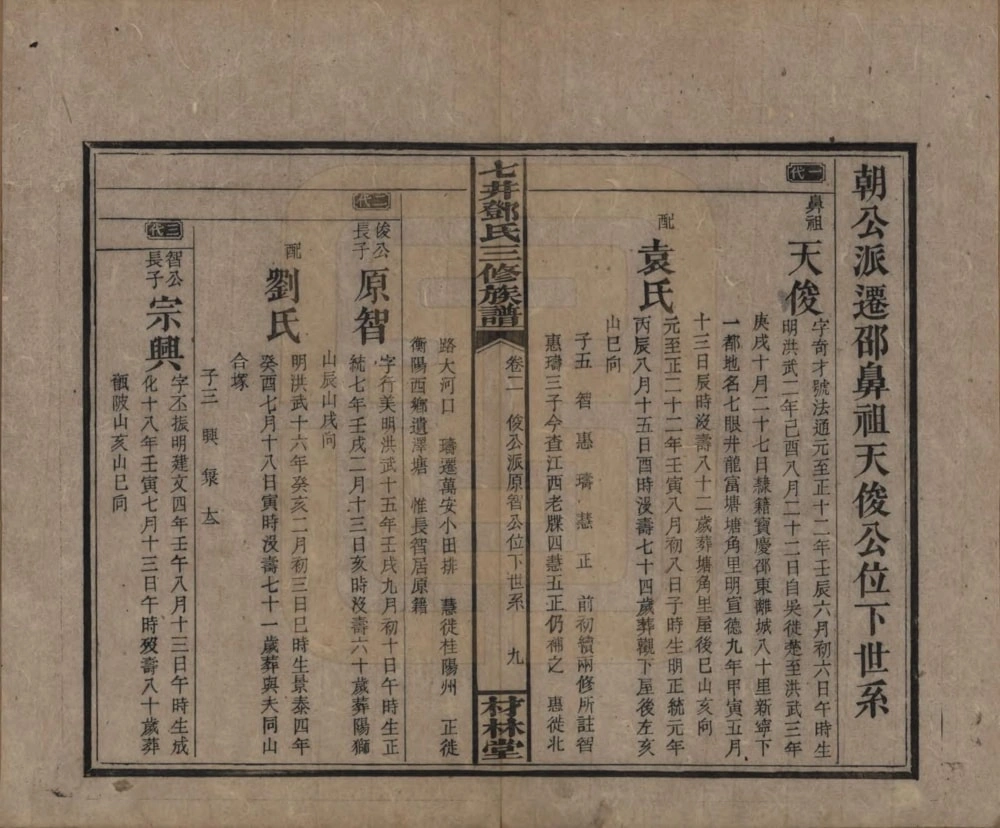 朝公派遷邵鼻祖天俊公位下世系
一代
鼻祖
天俊
字奇才號法通元至正十二年壬辰六月初六日午時生
明洪武二年己酉八月二十二日自吳徙楚至洪武三年
庚戌十月二十七日隸籍寶慶邵東離城八十里新寧下
一都地名七眼井龍富塘塘角里明宣德九年甲寅五月
十三日辰時沒壽八十二歲葬塘角里屋後巳山亥向
配
袁氏
元至正二十二年壬寅八月初八日子時生明正統元年
丙辰八月十五日酉時沒壽七十四歲葬觀下屋後左亥
山巳向
子五 智 惠 璹 慧 正 前初續兩修所註智
惠璹三子今查江西老牒四慧五正仍補之 惠徙北
七井鄧氏三修族譜
卷二 俊公派原智公位下世系 九
材林堂
路大河口 璹遷萬安小田排 慧徙桂陽州 正徙
衡陽西鄉遺澤塘 惟長智居原籍
二代
俊公
長子
原智
字行美明洪武十五年壬戌九月初十日午時生正
統七年壬戌二月十三日亥時沒壽六十歲葬陽獅
山辰山戌向
配
劉氏
明洪武十六年癸亥二月初三日巳時生景泰四年
癸酉七月十八日寅時沒壽七十一歲葬與夫同山
合塚
子三 興
三代
智公
長子
宗興
字丕振明建文四年壬午八月十三日午時生成
化十八年壬寅七月十三日午時歿壽八十歲葬
瓻陂山亥山巳向